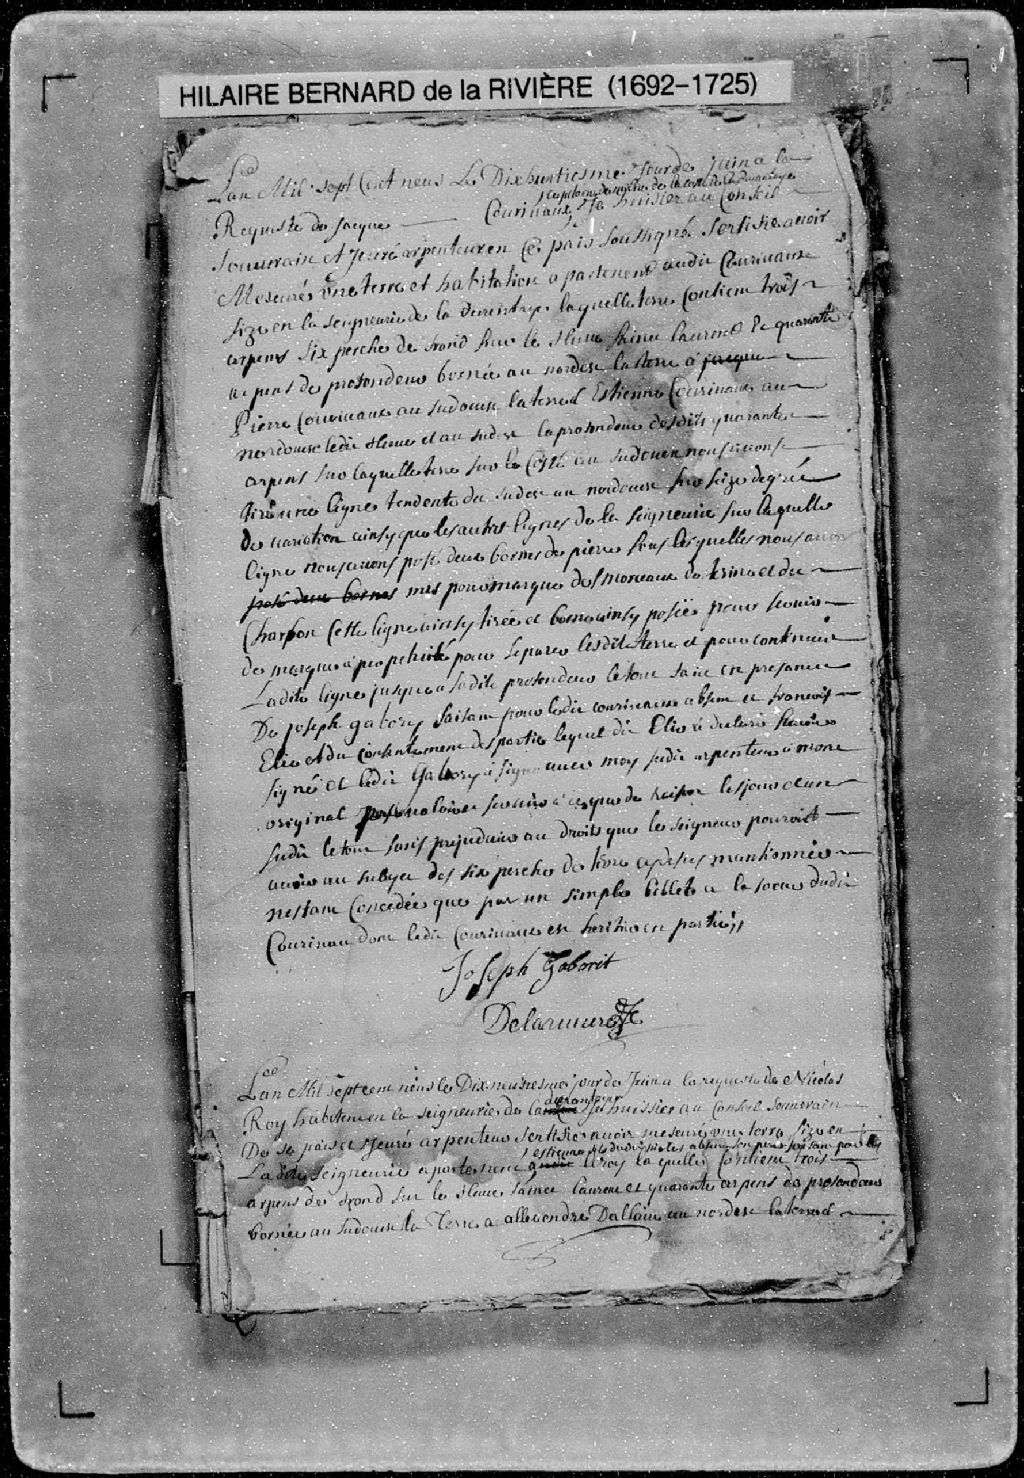 HILAIRE BERNARD de la RIVIÈRE (1692–1725)
Lan Mil sept Cent neuf Le Dixhuitiesme Jour de Juin a la
Requiste de Jacque Couriuaux Je huissier au Conseil
Souuerain et Juré arpenteur en Ce païs Soussigné Sertifie auoir
Mesuré vne terre et habitation apartenent audit Couriuaux
size en la seigneurie de la durentaye laquelle terre Contient trois
arpens six perche de frond sur le fleuue saint laurent & quarante
arpens de profondeur bornée au nordest la terre a
Pierre Couriuaux au sudouest la terre d Estienne Couriuaux au
nordouest ledit fleuue et au sudest la profondeur desdits quarante
arpens sur laquelle terre sur le Costé du sudouest nous auons
tiré une ligne tendente du sudest au nordouest sur seize degrée
de variation ainsy que les autres lignes de la seigneurie sur laquelle
ligne nous auons posé deux bornes de pierre sous lesquelles nous auons
posé deux bornes mis pour marque des morceaux de et du
Charbon Cette ligne ainsy tirée et borne ainsy posée pour seruir
de marque a perpetuité pour separer lesdite terre et pour continuer
Ladite ligne jusque a sadite profondeur le tout fait en presance
De joseph gabory faisant pour ledit couriuaux absent et francois
Elie et du consentement des partie lequel dit Elie a declaré ne sauoir
signé et ledit Gabory a signé auec moy sudit arpenteur a mon
original pour valoir seruir a ce que de raison les jour et an
sudit le tout sans prejudice au droits que le seigneur pouroit
auoir au subjet des six perche de terre cydesus mantionnée
nestant Concedée que par un simple billet a la soeur dudit
Couriuau dont ledit Couriuaux est heritier en partie
Joseph Gaborit
Delariuiere
Lan Mil sept cent neuf le Dix neufiesme jour de Juin a la requiste de Nicolas
Roy habitent en la seigneurie de la durantaye Je huissier au Conseil Souuerain
De se païs et Juré arpenteur Sertifie auoir mesuré vne terre size en
La dite seigneurie apartenent a estienne Roy laquelle Contient trois
arpens de frond sur le fleuue saint laurent et quarante arpens de profondeur
bornée au sudouest la Terre a allexendre Dallaire au nordest la terre d